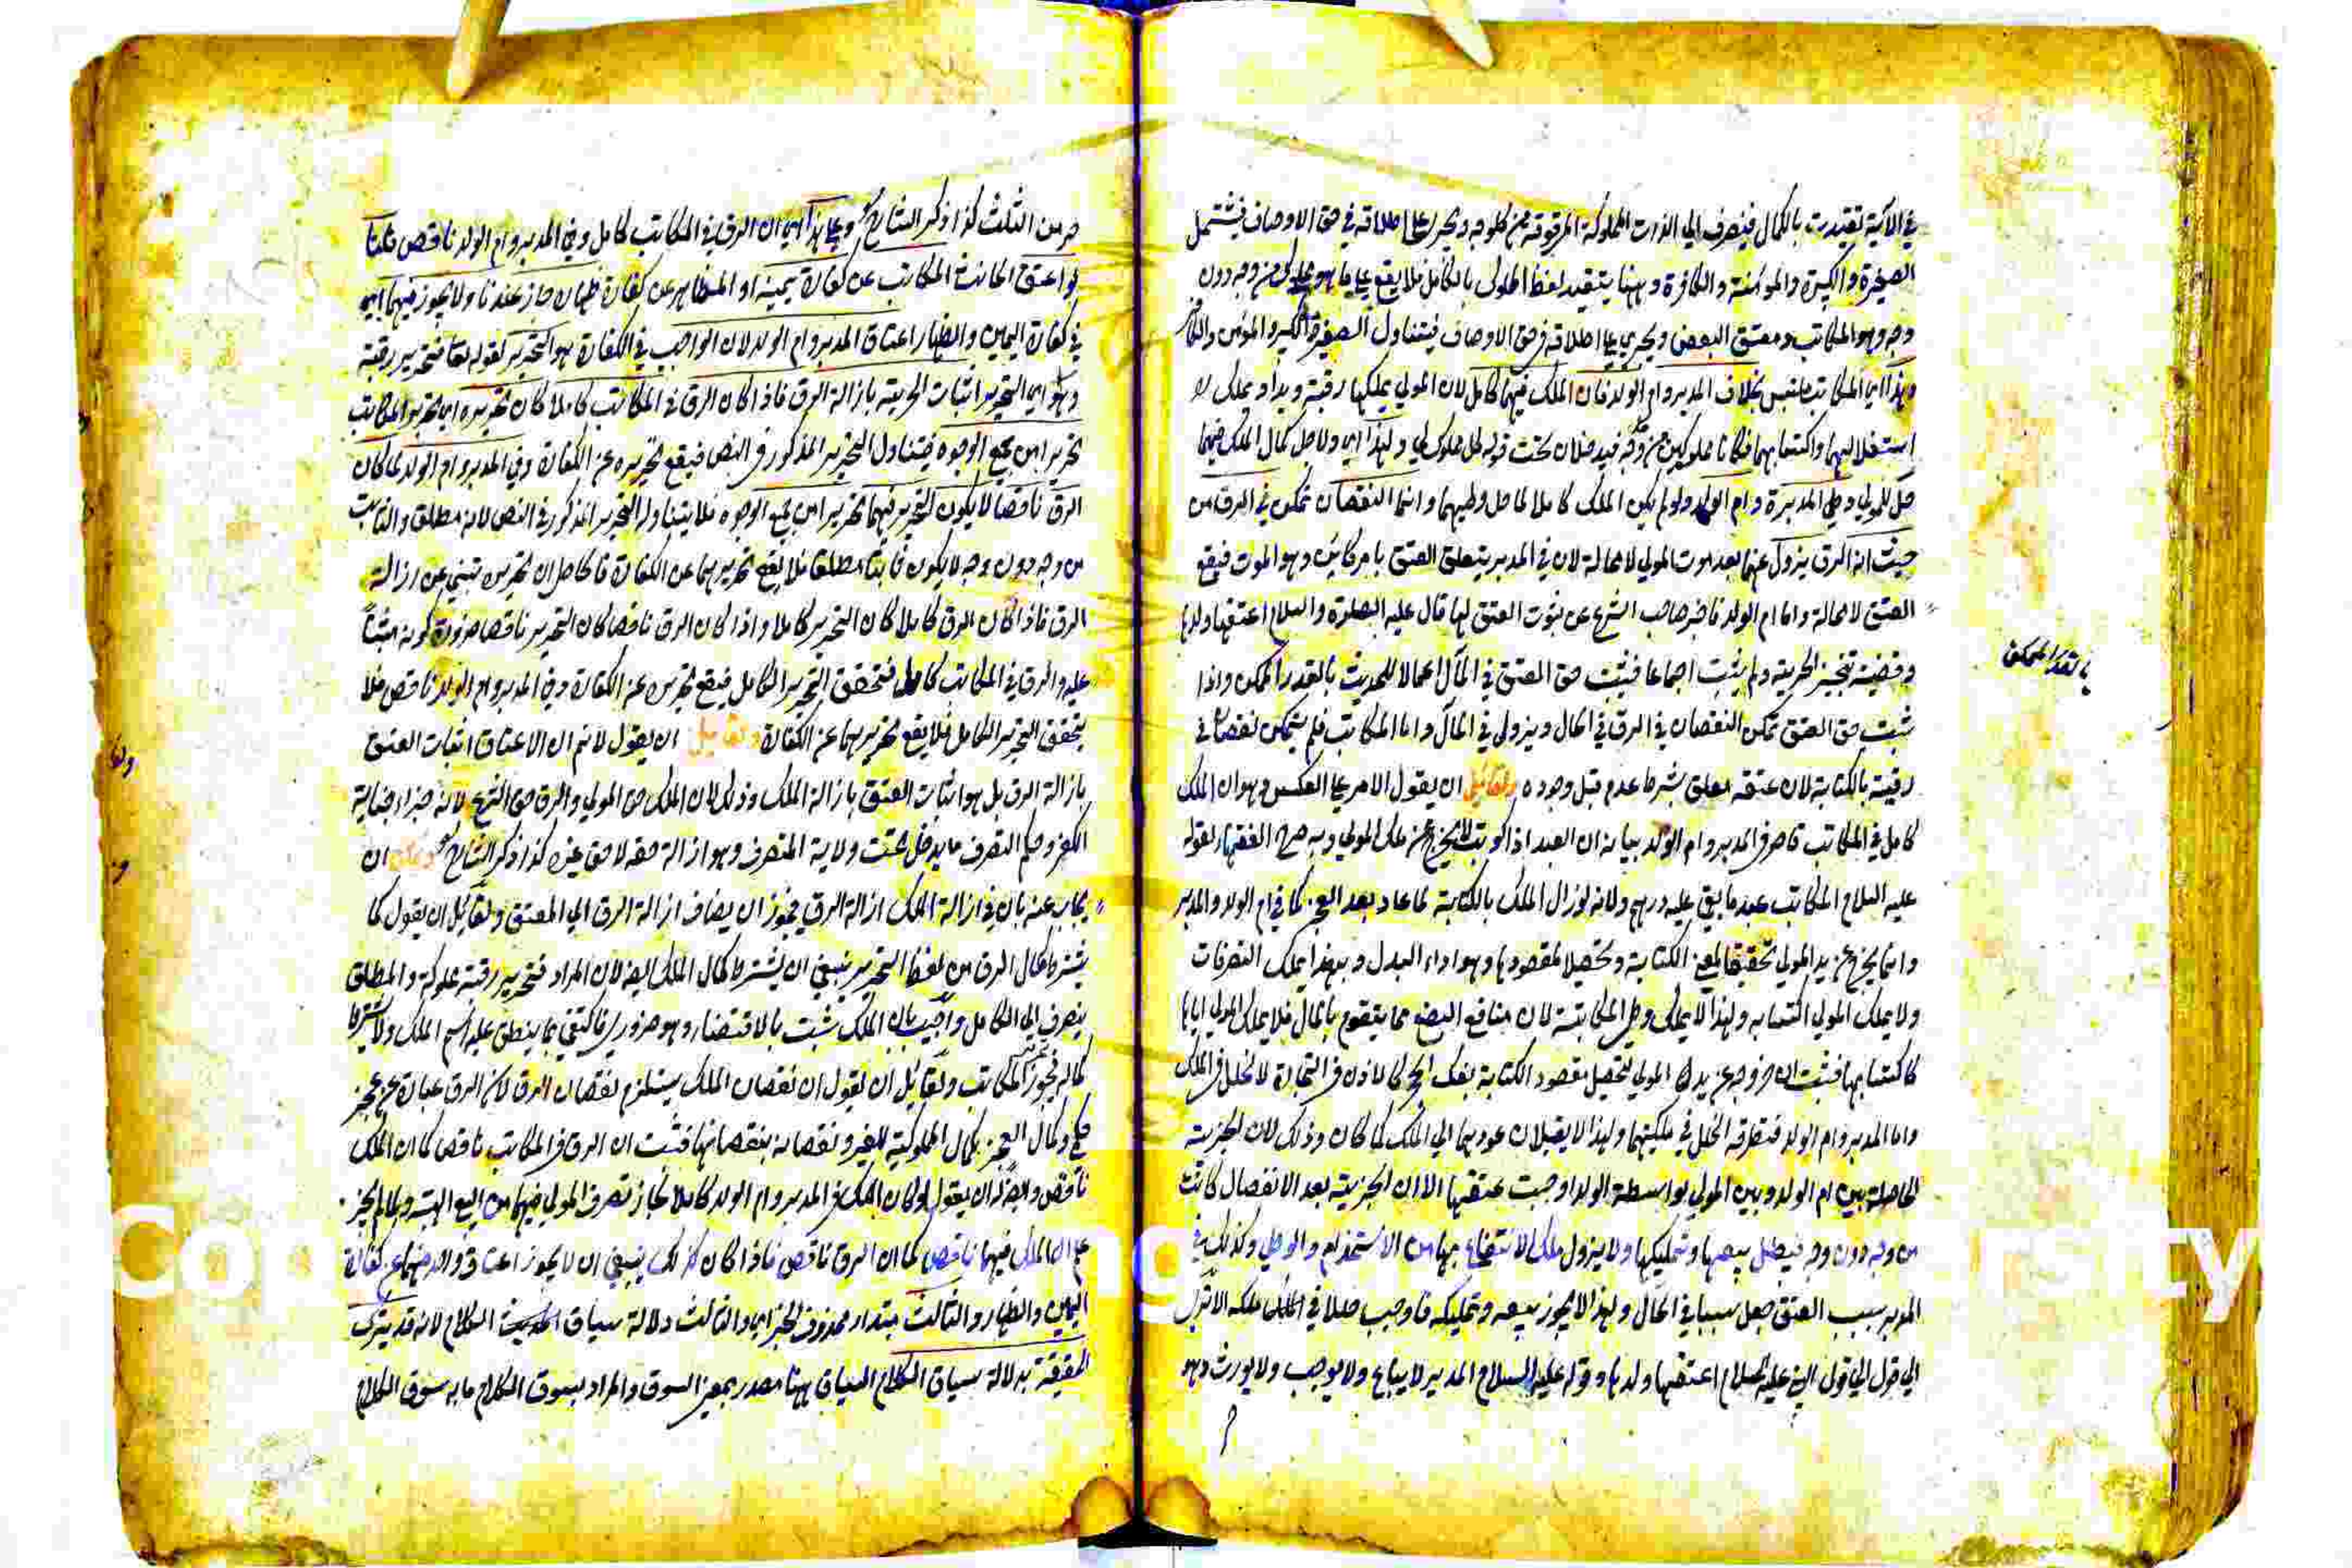 في الآية تقيدت بالكمال فينصرف الي الذات المملوكة المرقوقة من كل وجه ويجري علي اطلاقه في حق الاوصاف فيشتمل
الصغيرة والكبيرة والمؤمنة والكافرة وههنا يتقيد لفظ المملوك بالكامل فلا يقع علي ما هو مملوك من وجه دون
وجه وهو المكاتب ومعتق البعض ويجري علي اطلاقه في حق الاوصاف فيتناول الصغير والكبير والمؤمن والكافر
وهذا اي المكاتب ملتبس بخلاف المدبر وام الولد فان الملك فيهما كامل لان المولي يملكهما رقبة ويدا ويملك
استغلالهما واكتسابهما فكانا مملوكين من وجه فيدخلان تحت قوله كل مملوك لي ولهذا اي ولاجل كمال الملك فيهما
حل للمولي وطي المدبرة وام الولد ولو لم يكن الملك كاملا لما حل وطيهما وانما النقصان تمكن في الرق من
حيث ان الرق يزول عنهما بعد موت المولي لا محالة لان في المدبر يتعلق العتق بامر كائن وهو الموت فيقع
العتق لا محالة واما ام الولد فاخبر صاحب الشرع عن ثبوت العتق لها قال عليه الصلوة والسلام اعتقها ولدها
وقضيته تنجيز الحرية ولم يثبت اجماعا فيثبت حق العتق في المآل اعمالا للحديث بالقدر الممكن واذا
ثبت حق العتق تمكن النقصان في الرق في الحال ويزول في المآل واما المكاتب فلم يتمكن نقصان في
رقيته بالكتابة لان عتقه معلق بشرط عدم قبل وجوده ولقائل ان يقول الامر علي العكس وهو ان الملك
كامل في المكاتب قاصر في المدبر وام الولد بيانه ان العبد اذا كوتب لا يخرج عن ملك المولي وبه صرح الفقهاء لقوله
عليه السلام المكاتب عبد ما بقي عليه درهم ولانه لو زال الملك بالكتابة لما عاد بعد العجز كما في ام الولد والمدبر
وانما يخرج عن يد المولي تحقيقا لمعني الكتابة وتحصيلا لمقصودها وهو اداء البدل وبهذا يملك التصرفات
ولا يملك المولي اكتسابه ولهذا لا يملك وطي المكاتبة لان منافع البضع مما يتقوم بالمال فلا يملك المولي اياها
كاكتسابها فثبت ان خروجه عن يد المولي لتحصيل مقصود الكتابة بفك الحجر كالاذن في التجارة لا لخلل في الملك
واما المدبر وام الولد فتطرقه الخلل في ملكيتهما ولهذا لا يقبلان عودهما الي الملك كما كان وذلك لان الجزية
الحاصلة بين ام الولد وبين المولي بواسطة الولد اوجبت عتقها الا ان الجزئية بعد الانفصال كانت
من وجه دون وجه فيبطل بيعها وتمليكها ولا يزول ملك الانتفاع بها من الاستخدام والوطي وكذلك في
المدبر سبب العتق جعل سببا في الحال ولهذا لا يجوز بيعه وتمليكه فاوجب خللا في الملك ملكه
الي قول النبي عليه السلام اعتقها ولدها وقوله عليه السلام المدبر لا يباع ولا يوهب ولا يورث وهو
بالقدر الممكن
حر من الثلث كذا ذكر الشارح وعلي هذا اي ان الرق في المكاتب كامل وفي المدبر وام الولد ناقص قلنا
لو اعتق الحانث المكاتب عن كفارة يمينه او المظاهر عن كفارة ظهاره جاز عندنا ولا يجوز فيهما اي
في كفارة اليمين والظهار اعتاق المدبر وام الولد لان الواجب في الكفارة هو التحرير لقوله تعا فتحرير رقبة
وهو اي التحرير اثبات الحرية بازالة الرق فاذا كان الرق في المكاتب كاملا كان تحريره اي تحرير المكاتب
تحريرا من جميع الوجوه فيتناول التحرير المذكور في النص فيقع تحريره عن الكفارة وفي المدبر وام الولد لما كان
الرق ناقصا لا يكون التحرير فيهما تحريرا من جميع الوجوه فلا يتناوله التحرير المذكور في النص لانه مطلق والثابت
من وجه دون وجه لا يكون ثابتا مطلقا فلا يقع تحريرهما عن الكفارة فالحاصل ان تحريره تنبي عن ازالة
الرق فاذا كان الرق كاملا كان التحرير كاملا واذا كان الرق ناقصا كان التحرير ناقصا ضرورة كونه مبنيا
عليه والرق في المكاتب كامل فتحقق التحرير الكامل فيقع تحريره عن الكفارة وفي المدبر وام الولد ناقص فلا
يتحقق التحرير الكامل فلا يقع تحريرهما عن الكفارة ولقائل ان يقول لا نم ان الاعتاق اثبات العتق
بازالة الرق بل هو اثبات العتق بازالة الملك وذلك لان الملك حق المولي والرق حق الشرع لانه جزاء جناية
الكفر وحكم التصرف ما يدخل تحت ولاية المتصرف وهو ازالة حقه لا حق غيره كذا ذكر الشارح ويمكن ان
يجاب عنه بان في ازالة الملك ازالة الرق فيجوز ان يضاف ازالة الرق الي المعتق ولقائل ان يقول كما
يشترط كمال الرق من لفظ التحرير ينبغي ان يشترط كمال الملك ايضا لان المراد فتحرير رقبة مملوكة والمطلق
ينصرف الي الكامل واجيب بان الملك ثبت بالاقتضاء وهو ضروري فاكتفي بما ينطلق عليه اسم الملك ولا يشترط
كماله فيجوز المكاتب ولقائل ان يقول ان نقصان الملك يستلزم نقصان الرق لان الرق عبارة عن عجز
حكمي وكمال العجز بكمال المملوكية للغير ونقصانه بنقصانها فثبت ان الرق في المكاتب ناقص كما ان الملك
ناقص وايضا له ان يقول لو كان الملك في المدبر وام الولد كاملا لجاز تصرف المولي فيهما من البيع والهبة ولما لم يجز
علم ان الملك فيهما ناقص كما ان الرق ناقص فاذا كان كذلك ينبغي ان لا يجوز اعتاق واحد منهما عن كفارة
اليمين والظهار والثالث مبتدأ محذوف الخبر اي والثالث دلالة سياق الكلام لانه قد يترك
الحقيقة بدلالة سياق الكلام السياق ههنا مصدر بمعني السوق والمراد بسوق الكلام ما به سوق الكلام